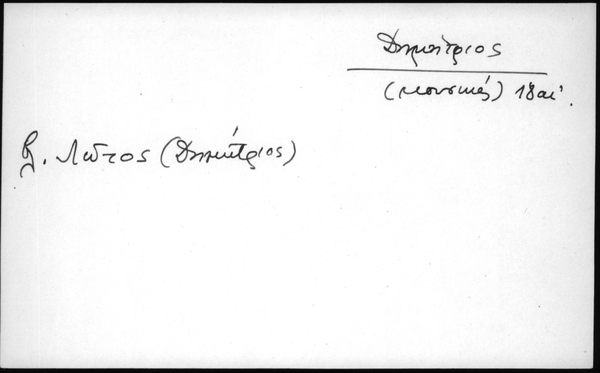 Δημήτριος
(μουσικός) 18 αἰ.
βλ. Λῶτος (Δημήτριος)